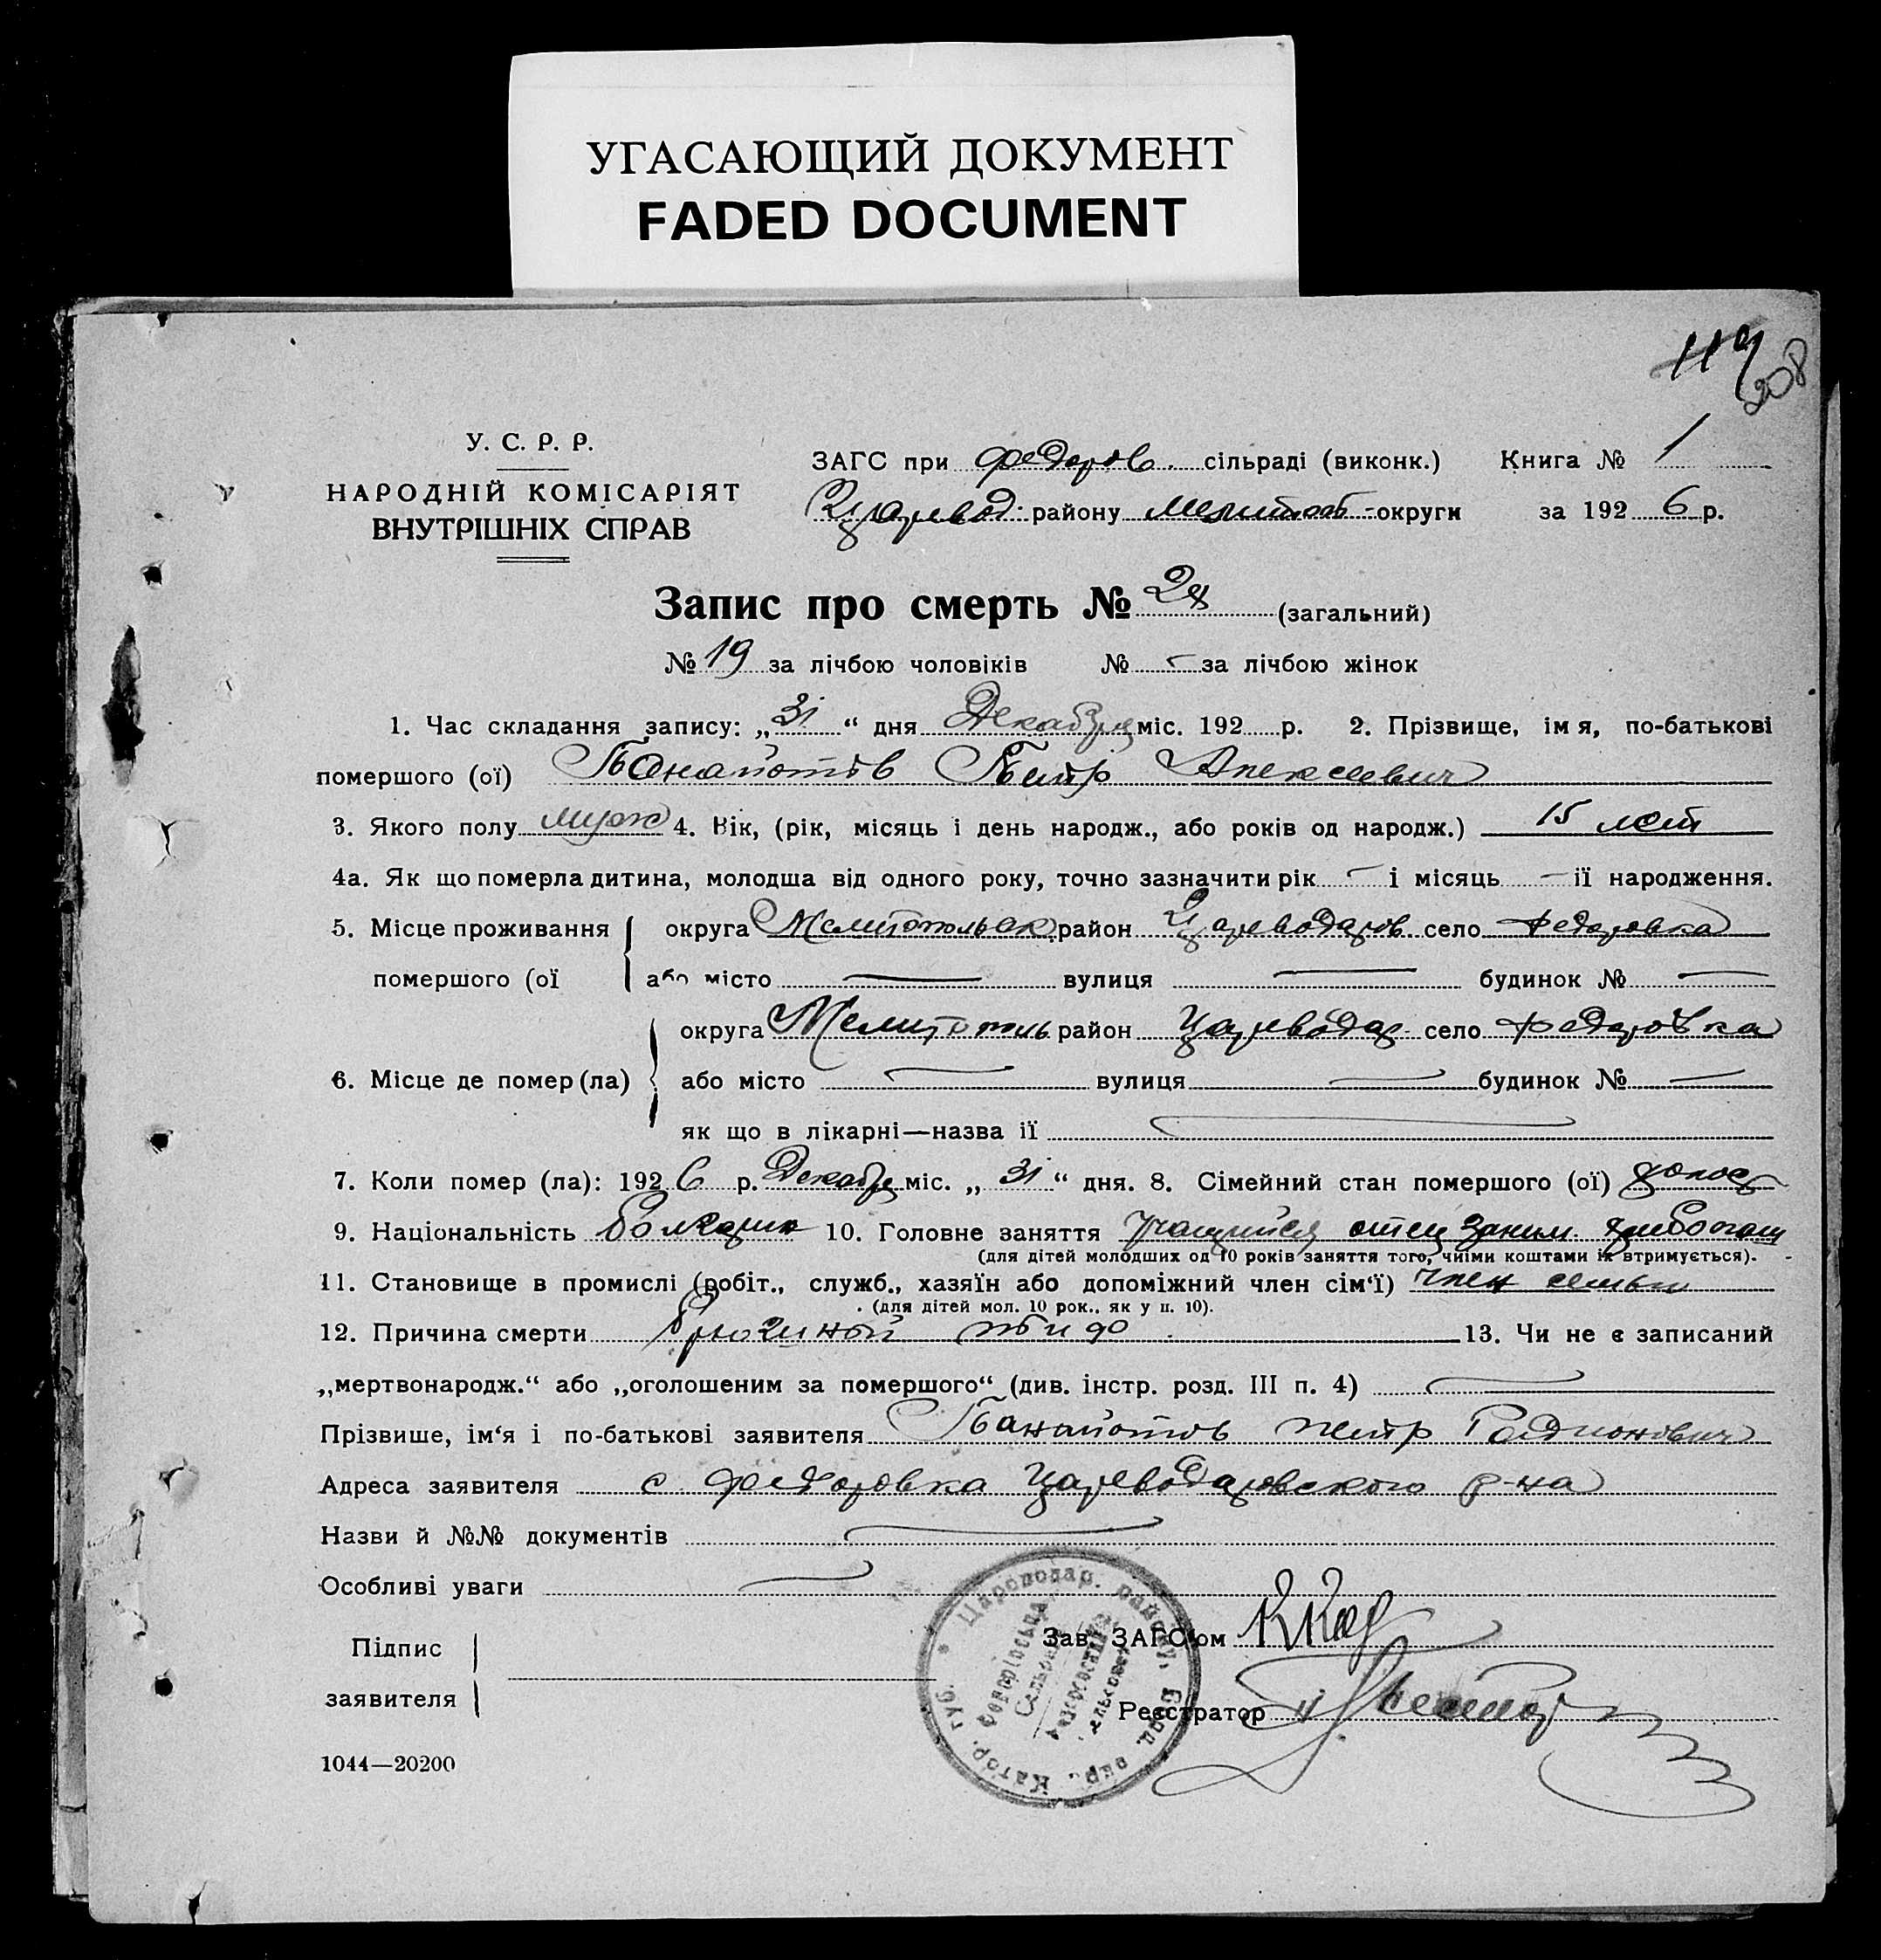 УГАСАЮЩИЙ ДОКУМЕНТ
FADED DOCUMENT
119
208
У. С. Р. Р.
НАРОДНІЙ КОМІСАРІЯТ
ВНУТРІШНІХ СПРАВ
ЗАГС при Федоров. сільраді (виконк.) Книга № 1
Царевод. району Мелитоп округи за 192 6 р.
Запис про смерть № (загальний)
№ 19 за лічбою чоловіків № - за лічбою жінок
1. Час складання запису: „ 31 “ дня Декабря міс. 192 р. 2. Прізвище, імя, по-батькові
помершого (ої) Панайотов Петр Алексеевич
3. Якого полу муж 4. Вік, (рік, місяць і день народж., або років од народж.) 15 лет
4а. Як що померла дитина, молодша від одного року, точно зазначити рік - і місяць - її народження.
5. Місце проживання округа Мелитопольск район Цареводаров. село Федоровка
помершого (ої або місто — вулиця — будинок № —
округа Мелитополь район Цареводар. село Федоровка
6. Місце де помер (ла) або місто — вулиця — будинок № —
як що в лікарні—назва її —
7. Коли помер (ла): 192 6 р. Декабря міс. „ 31 “ дня. 8. Сімейний стан помершого (ої) холост
9. Національність Болгарин 10. Головне заняття Учащийся отец заним. хлебопаш
(для дітей молодших од 10 років заняття того, чиїми коштами їх втримується).
11. Становище в промислі (робіт., служб., хазяїн або допоміжний член сім‘ї) член семьи
(для дітей мол. 10 рок., як у п. 10).
12. Причина смерти Брюшной тиф 13. Чи не є записаний
„мертвонародж.“ або „оголошеним за помершого“ (див. інстр. розд. III п. 4) —
Прізвише, ім‘я і по-батькові заявителя Панайотов Петр Родионович
Адреса заявителя с Федоровка Цареводаровского р-на
Назви й №№ документів —
Особливі уваги —
Підпис
заявителя
Зав. ЗАГС‘ом
Реєстратор
Царсводар. району, окр. Катер. губ.
1044—20200